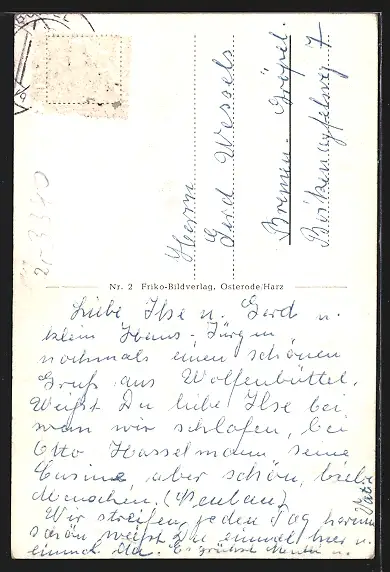 Herrn
Gerd Wessels
Bremen-Gröpel.
Birkenapfelweg 7
2r 3370
Nr. 2 Friko-Bildverlag, Osterode/Harz
Liebe Ilse u. Gerd u.
klein Hans-Jürgen
nochmals einen schönen
Gruß aus Wolfenbüttel.
Weißt Du liebe Ilse bei
wem wir schlafen, bei
Otto Hasselmann seine
Cusine, aber schön, liebe
Menschen. (Neubau)
Wir streifen jeden Tag herum
schön weißt Du einmal hier u.
einmal da. Es grüßen Mutti u.
Vati